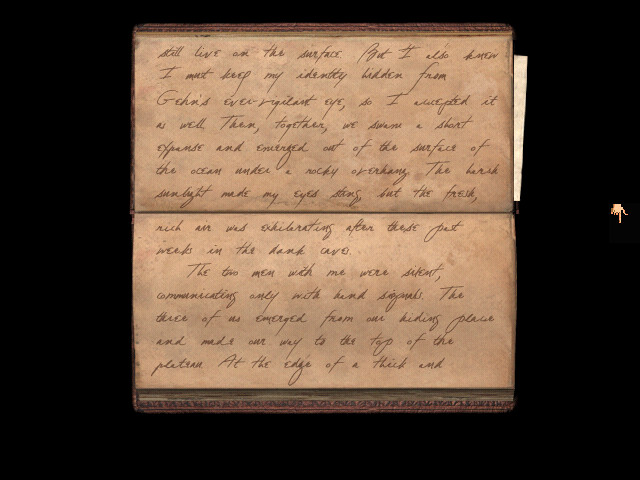 still live on the surface. But I also knew
I must keep my identity hidden from
Gehn's ever-vigilant eye, so I accepted it
as well. Then, together, we swam a short
expanse and emerged out of the surface of
the ocean under a rocky overhang. The harsh
sunlight made my eyes sting, but the fresh,
rich air was exhilerating after these past
weeks in the dank caves.
The two men with me were silent,
communicating only with hand signals. The
three of us emerged from our hiding place
and made our way to the top of the
plateau. At the edge of a thick and